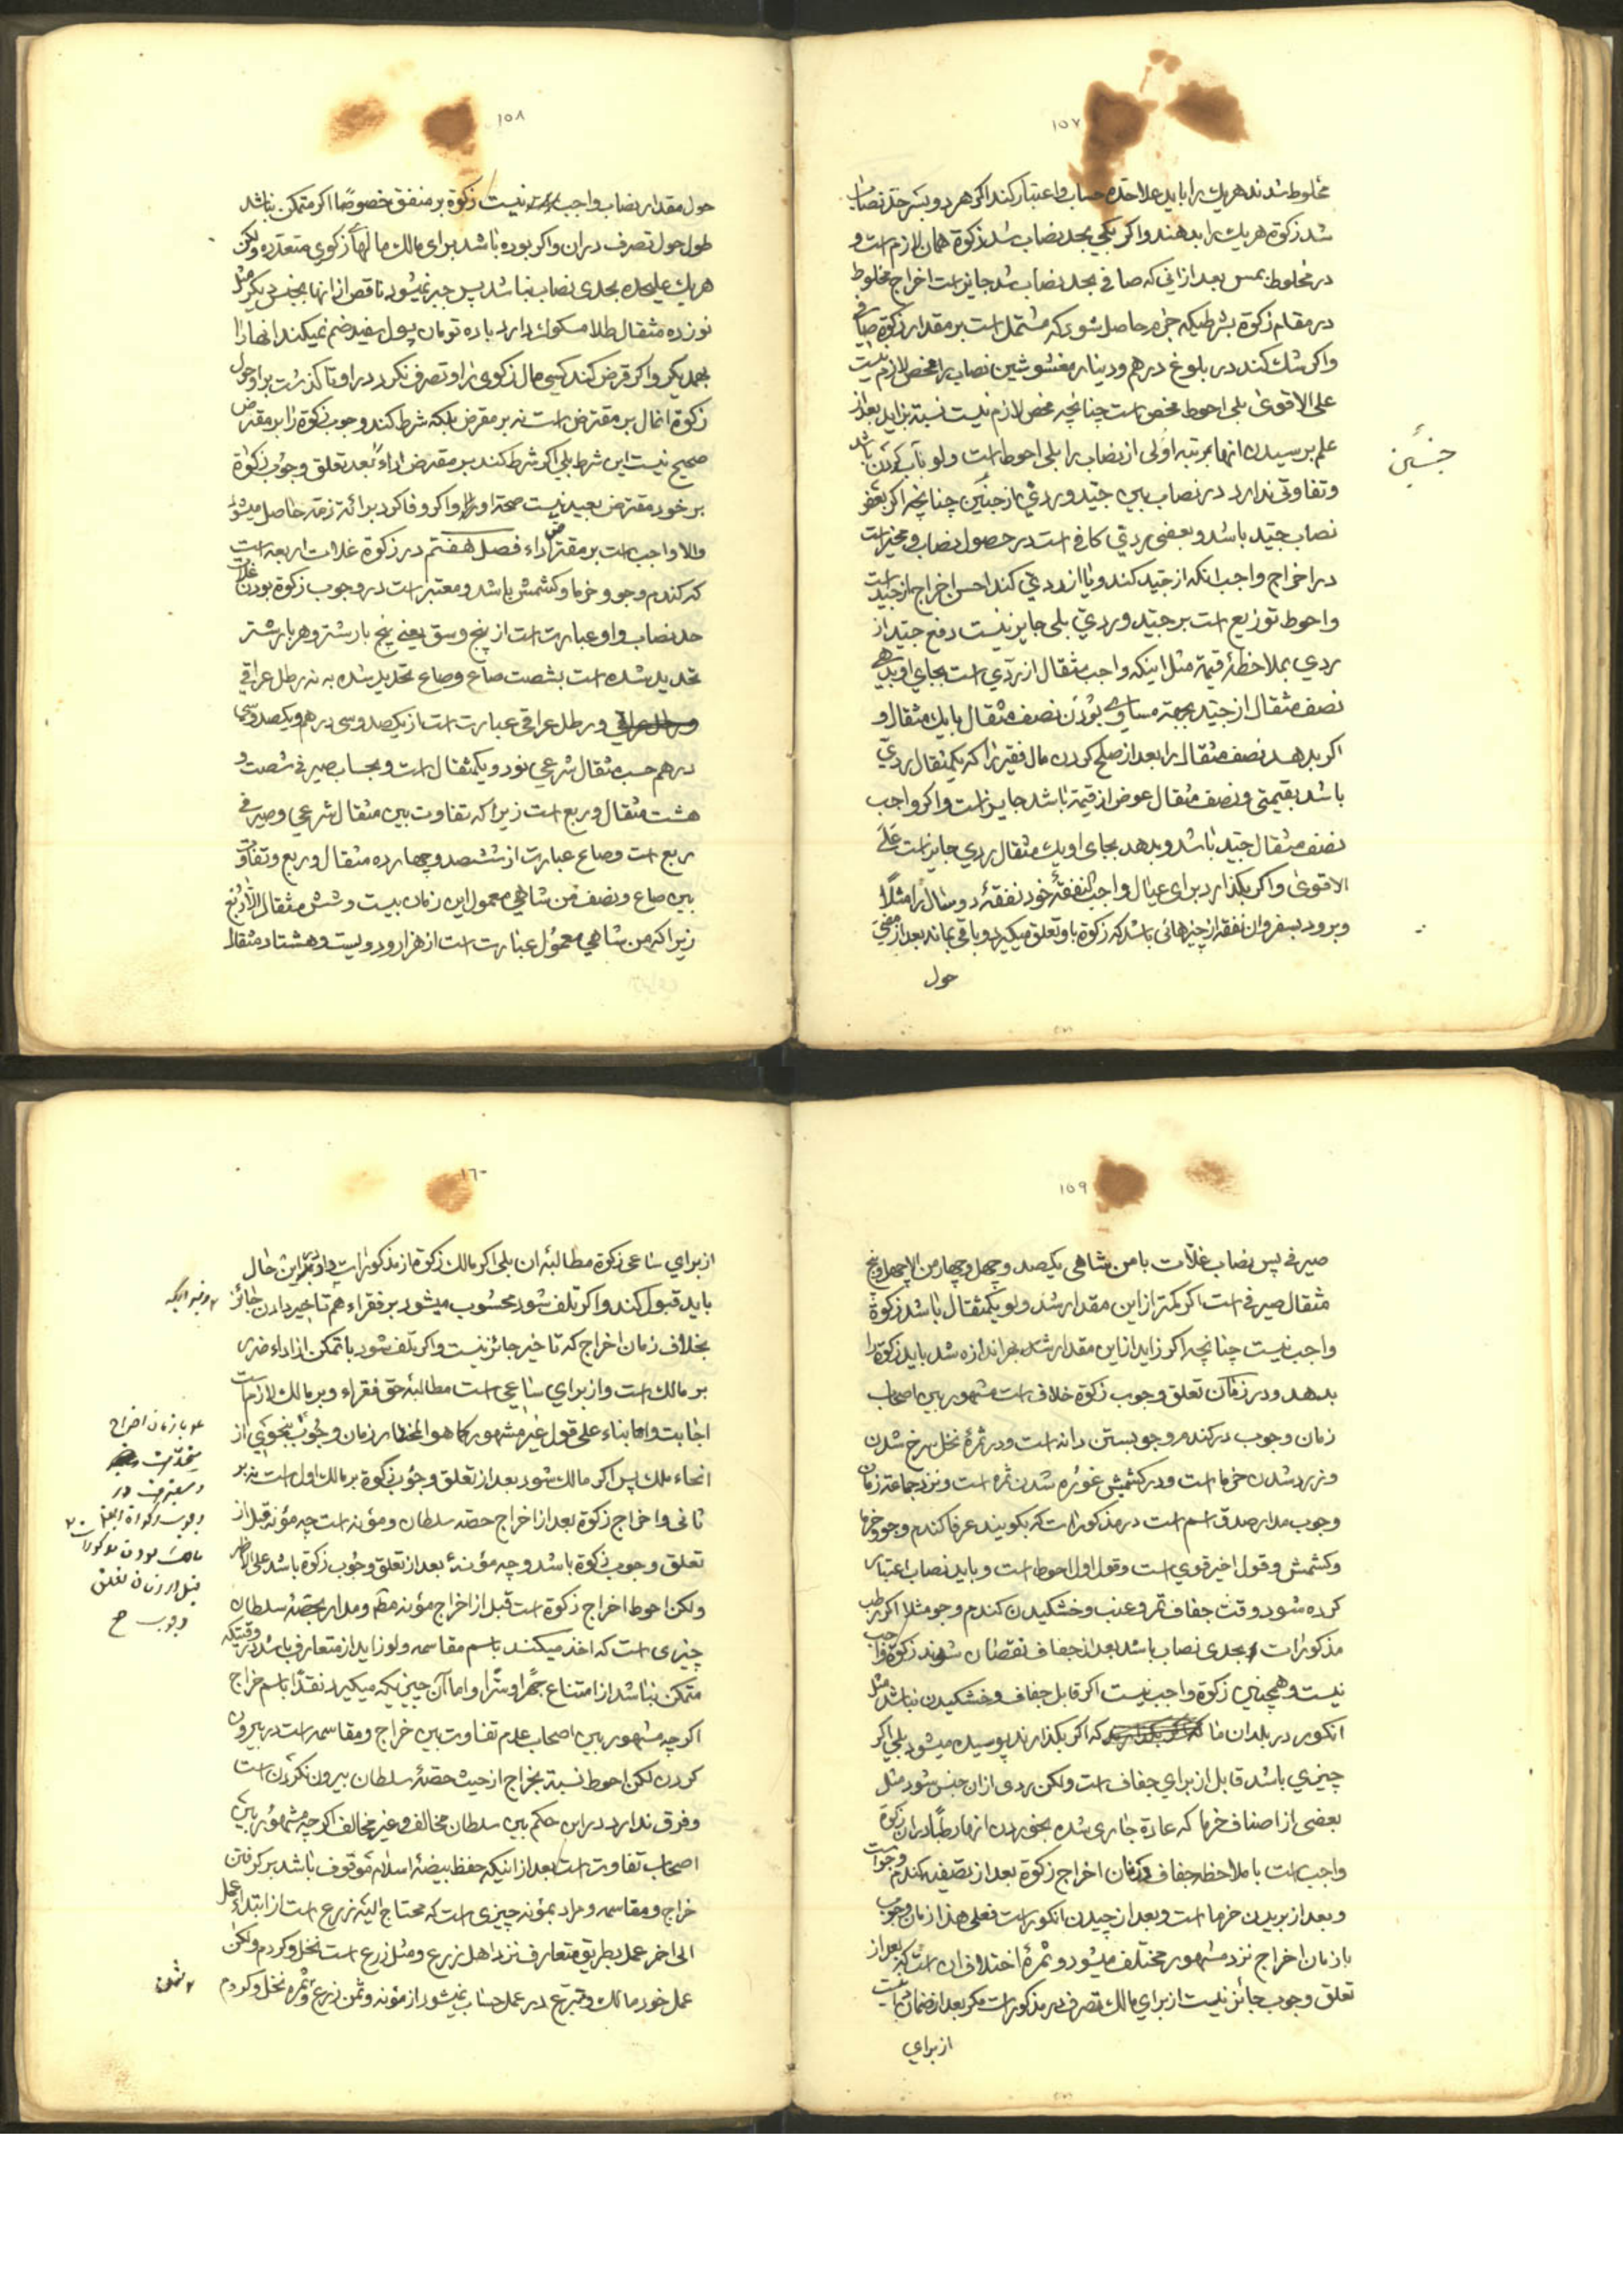 ۱۵۷
مخلوط شدند هر یك را باید علاحده حساب و اعتبار کند اکر هر دو بسر حد نصاب
شد زکوة هر یك را بدهند و اکر یکی بحد نصاب شد زکوة همان لازم است و
در مخلوط بمس بعد از انی که صافی بحد نصاب شد جایز است اخراج مخلوط
در مقام زکوة بشرطیکه جزء حاصل شود که مشتمل است بر مقدار زکوة صافی
و اکر شك کند در بلوغ درهم و دینار مغشوشین نصاب را فحص لازم نیست
علی الاقوی بلی احوط فحص است چنانچه فحص لازم نیست نسبة بزاید بعد از
علم برسیدن انها بمرتبه اولی از نصاب را بلی احوط است ولو باب کردن باشد
و تفاوتی ندارد در نصاب بین جیّد و ردیّ از جنسین چنانچه اکر بعض
نصاب جیّد باشد و بعضی ردی کافی است در حصول نصاب و مخیر است
در اخراج واجب انکه از جیّد کند و یا از ردی کند احسن اخراج از جیّد است
و احوط توزیع است بر جیّد و ردیّ بلی جایز نیست دفع جیّد از
ردی بملاحظهٔ قیمة مثل اینکه واجب مثقال از ردّی است بجای او بدهی
نصف مثقال از جیّد بجهة مساوی بودن نصف مثقال با یك مثقال و
اکر بدهد نصف مثقال را بعد از صلح کردن مال فقیر را که یکمثقال ردیّ
باشد بقیمتی و نصف مثقال عوض از قیمة باشد جایز است و اکر واجب
نصف مثقال جیّد باشد و بدهد بجای او یك مثقال ردی جایز است علی
الاقوی و اکر بکذارد برای عیال واجب النفقهٔ خود نفقهٔ دو سال را مثلًا
و برود بسفر و ان نفقه از چیزهائی باشد که زکوة باو تعلق میکیرد و باقی بماند بعد از مضیّ
حول
جنسَین
۱۵۸
حول مقدار نصاب واجب نیست زکوة بر منفق خصوصًا اکر متمکن نباشد
طول حول تصرف در ان و اکر بوده باشد برای مالك مالهای زکوی متعدده ولکن
هر یك علیحده بحدی نصاب نباشد پس جبر نمیشود ناقص از انها بجنس دیکر مثل
نوزده مثقال طلا مسکوك دارد با ده تومان پول سفید ضم نمیکند انها را
بهمدیکر و اکر قرض کند کسی مال زکوی را و تصرف نکرد در او تا کذشت بر او حول
زکوة انمال بر مقترض است نه بر مقرض بلکه شرط کند وجوب زکوة را بر مقرض
صحیح نیست این شرط بلی اکر شرط کند بر مقرض اداء بعد تعلق وجوب زکوة
بر خود مقترض بعید نیست صحة او را و اکر وفا کرد برائة ذمّه حاصل میشود
والا واجب است بر مقترض اداء فصل هفتم در زکوة غلات اربعه است
که کندم و جو و خرما و کشمش باشد و معتبر است در وجوب زکوة بودن غلات
حد نصاب و او عبارت است از پنج وسق یعنی پنج بار شتر و هر بار شتر
تحدید شده است بشصت صاع و صاع تحدید شده به نه رطل عراقی
و رطل عراقی عبارت است از یکصد و سی درهم و یکصد و سی
درهم حسب مثقال شرعی نود و یکمثقال است و بحساب صیرفی شصت و
هشت مثقال و ربع است زیرا که تفاوت بین مثقال شرعی و صیرفی
ربع است و صاع عبارت از ششصد و چهارده مثقال و ربع و تفاوت
بین صاع و نصف من شاهی معمول این زمان بیست و شش مثقال الّا ربع
زیرا که من شاهی معمول عبارت است از هزار و دویست و هشتاد مثقال
۱۵۹
صیرفی پس نصاب غلّات با من شاهی یکصد و چهل و چهار من الا چهل و پنج
مثقال صیرفی است اکر کمتر از این مقدار شد ولو یکمثقال باشد زکوة
واجب نیست چنانچه اکر زاید از این مقدار شد بهر اندازه شد باید زکوة را
بدهد و در زمان تعلق وجوب زکوة خلاف است مشهور بین اصحاب
زمان وجوب در کندم و جو بستن دانه است و در ثمرهٔ نخل سرخ شدن
و زرد شدن خرما است و در کشمش غوره شدن ثمره است و نزد جماعة زمان
وجوب مدار صدق اسم است در مذکورات که بکویند عرفا کندم و جو و خرما
و کشمش و قول اخیر قوی است و قول اول احوط است و باید نصاب اعتبار
کرده شود وقت جفاف تمر و عنب و خشکیدن کندم و جو مثلا اکر رطب
مذکورات بحدی نصاب باشد بعد از جفاف نقصان شوند زکوة واجب
نیست و همچنین زکوة واجب نیست اکر قابل جفاف و خشکیدن نباشد مثل
انکور در بلدان ما که اکر بکذارند پوسیده میشود بلی اکر
چیزی باشد قابل از برای جفاف است ولکن ردی از ان جنس شود مثل
بعضی از اصناف خرما که عادة جاری شده بخوردن انها رطبًا در ان زکوة
واجب است با ملاحظه جفاف و زمان اخراج زکوة بعد از تصفیه کندم و جو است
و بعد از بریدن خرما است و بعد از چیدن انکور است فعلی هذا زمان وجوب
با زمان اخراج نزد مشهور مختلف میشود و ثمرهٔ اختلاف ان است که بعد از
تعلق وجوب جائز نیست از برای مالك تصرف در مذکورات مکر بعد از ضمان
از برای
۱۶۰
از برای ساعی زکوة مطالبهٔ ان بلی اکر مالك زکوة از مذکورات داد در این حال
باید قبول کند و اکر تلف شود محسوب میشود بر فقراء هم تأخیر دادن جائز
بخلاف زمان اخراج که تاخیر جائز نیست و اکر تلف شود با تمکن از اداء ضرر
بر مالك است و از برای ساعی است مطالبهٔ حق فقراء و بر مالك لازم است
اجابت و اما بناء علی قول غیر مشهور کما هو المختار زمان وجوب بنحوی از
انحاء ملك پس اکر مالك شود بعد از تعلق وجوب زکوة بر مالك اول است نه بر
ثانی و اخراج زکوة بعد از اخراج حصّه سلطان و مؤنه است چه مؤنه قبل از
تعلق وجوب زکوة باشد و چه مؤنهٔ بعد از تعلق وجوب زکوة باشد علی الاظهر
ولکن احوط اخراج زکوة است قبل از اخراج مؤنه مط و مدار بحصّهٔ سلطان
چیزی است که اخذ میکنند باسم مقاسمه ولو زاید از متعارف باشد در وقتیکه
متمکن نباشد از امتناع جهرًا و سرًّا و اما آن چیزیکه میکیرد نقدًا باسم خراج
اکر چه مشهور بین اصحاب عدم تفاوت بین خراج و مقاسمه است در بیرون
کردن لکن احوط نسبة بخراج از حیث حصّهٔ سلطان بیرون نکردن است
و فرق ندارد در این حکم بین سلطان مخالف و غیر مخالف اکر چه مشهور بین
اصحاب تفاوت است بعد از اینکه حفظ بیضهٔ اسلام موقوف باشد بر کرفتن
خراج و مقاسمه و مراد بمؤنه چیزی است که محتاج الیه زرع است از ابتداء عمل
الی اخر عمل بطریق متعارف نزد اهل زرع و مثل زرع است نخل و کرم ولکن
عمل خود مالك و متبرع در عمل حساب نمیشود از مؤنه و ثمن زرع و ثمره نخل و کرم
با زمان اخراج
متحد است
و معتبر است در
وجوب زکوة ایضا
مالك بودن مذکورات
قبل از زمان تعلق
وجوب صح